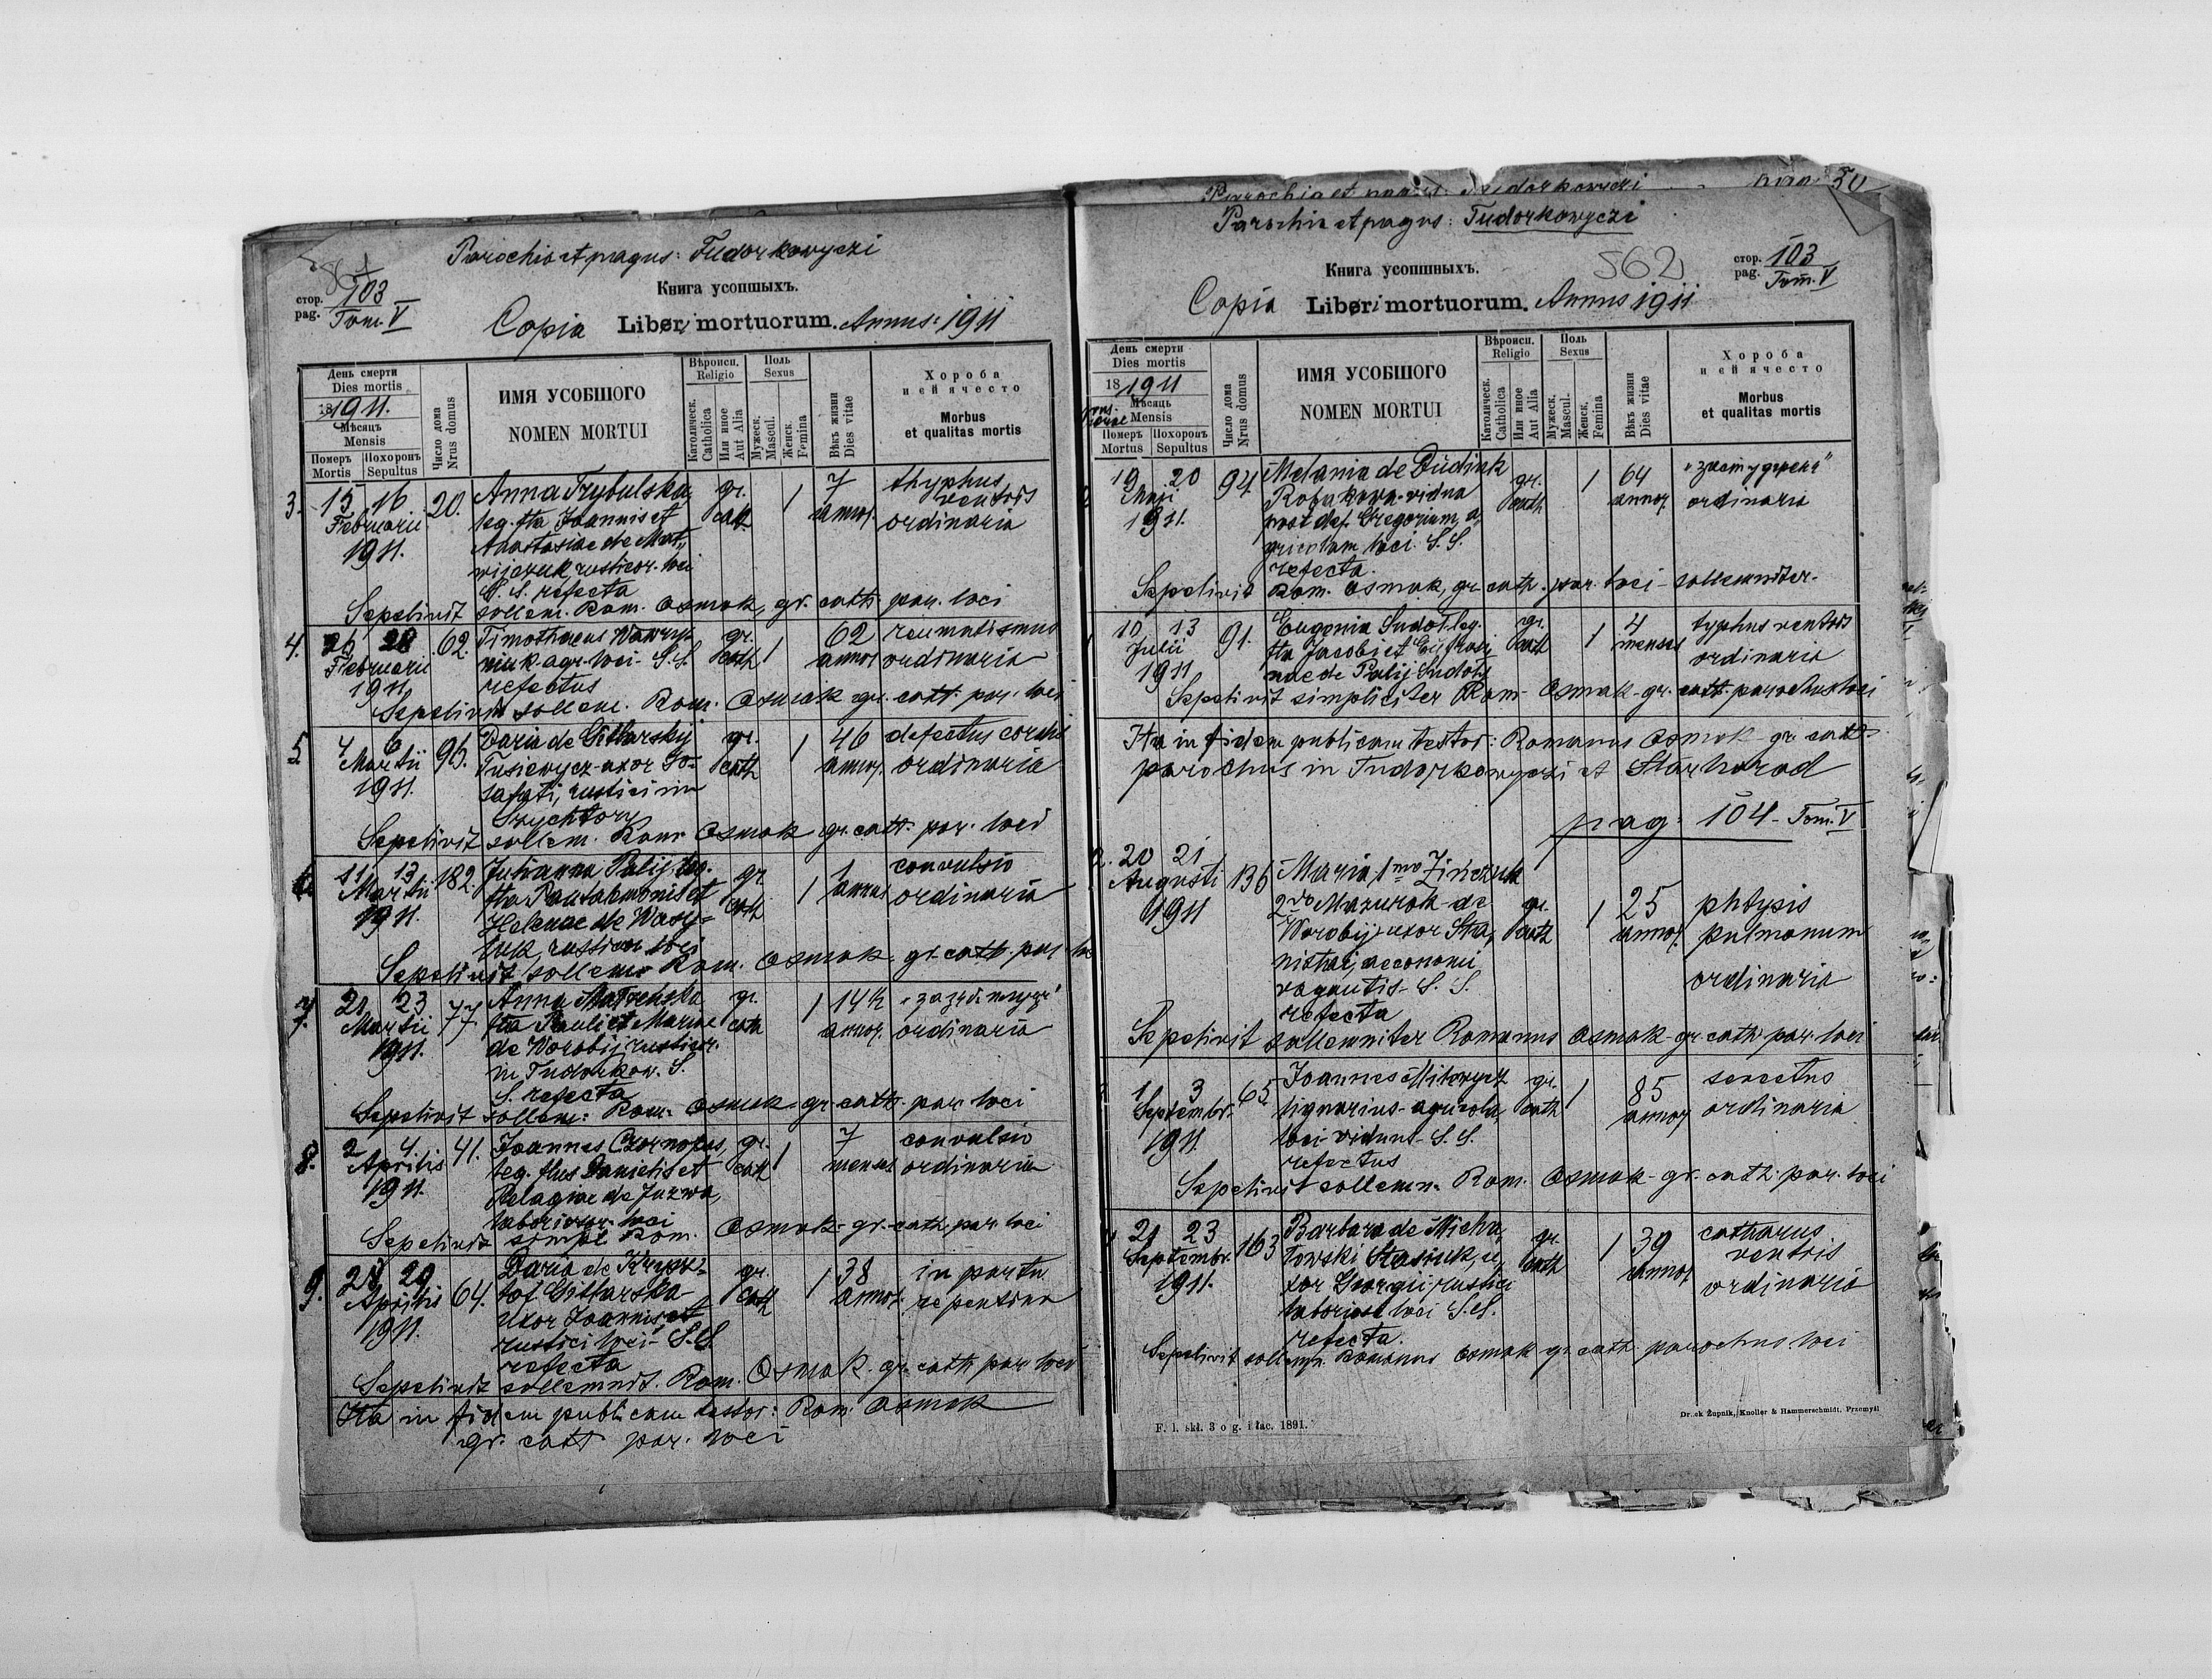 Parochia et pagus: Tudorkowyczi
Книга усопшыхъ.
стор. pag. 103 Tom. V
Copia Liberi mortuorum. Annus: 1911
День смерти
Dies mortis
1911.
Мѣсяць
Mensis
Померъ Mortis
Похоронъ Sepultus
Число дома
Nrus domus
ИМЯ УСОБШОГО
NOMEN MORTUI
Вѣроисп.
Religio
Католическ.
Catholica
Или иное
Aut Alia
Полъ
Sexus
Мужеск.
Mascul.
Женск.
Femina
Вѣкъ жизни
Dies vitae
Хороба
и ей ячесто
Morbus
et qualitas mortis
3. 15 16 20. Anna Trybulska, gr. 1 7 thyphus
Februarii leg. fta Joannis et cath annor. ventris
1911. Anastasiae de Mat- ordinaria
wijczuk, rusticor. loci
S. S. refecta
Sepelivit sollem. Rom. Osmak, gr. cath. par. loci
4. 26 28 62. Timothaeus Wawry- gr. 1 62 reumatismus
Februarii niuk agr. loci - S. S. cath annor ordinaria
1911 refectus
Sepelivit sollem. Rom. Osmak gr. cath. par. loci
5 4 6 95. Daria de Gittarskij gr. 1 46 defectus cordis
Martii Tusiewycz - uxor Jo- cath annor. ordinaria
1911. safati, rustici in
Szychtory
Sepelivit sollem. Rom Osmak gr. cath. par. loci
11 13 182. Julianna Palij, leg. gr 1 1 convulsio
Martii fta Pantalemonis et cath annus ordinaria
1911. Helenae de Wasy-
luk, rusticor loci
Sepelivit sollem. Rom. Osmak gr. cath. par. loci
7. 21 23 77. Anna gr. 1 14½
Martii fta Pauli et Mariae cath annor. ordinaria
1911. de Worobij rusticor.
in Tudorkow. S.
S. refecta
Sepelivit sollem: Rom. Osmak gr. cath. par loci
8. 2 4. 41. Joannes Czornopas, gr. 1 7 convulsio
Aprilis leg. flus Danielis et cath menses ordinaria
1911. Pelagiae de Juzwa,
laborioror. loci
Sepelivit simpl Rom. Osmak gr. cath. par loci
9. 28 29 64. Daria de Krysz- gr. 1 38 in partu
Aprilis tof Gittarska - cath annor. repentina
1911. uxor Joannis, et
rustici loci - S. S.
refecta
Sepelivit sollemnit. Rom. Osmak. gr. cath par. loci
Ita in fidem publicam testor: Rom. Osmak
gr. cath par. loci
Parochia et pagus: Tudorkowyczi
Parochia et pagus: Tudorkowyczi
Книга усопшныхъ.
562
стор. pag. 103 Tom. V
Copia Liberi mortuorum. Annus 1911
День смерти
Dies mortis
18 1911
Мѣсяць
Mensis
Померъ Mortus
Похоронъ Sepultus
Число дома
Nrus domus
ИМЯ УСОБШОГО
NOMEN MORTUI
Вѣроисп.
Religio
Католическ.
Catholica
Или иное
Aut Alia
Полъ
Sexus
Мужеск.
Mascul.
Женск.
Femina
Вѣкъ жизни
Dies vitae
Хороба
и ей ячесто
Morbus
et qualitas mortis
19 20 94. Melania de Dudiuk gr. 1 64
Maji Robakowa - vidua cath annor. ordinaria
1911. post def. Gregorium, a-
gricolam loci. S. S.
refecta.
Sepelivit Rom. Osmak, gr. cath. par. loci - sollemniter.
10 13 91. Eugenia Sudoł leg. gr. 1 4 typhus ventris
Julii fta Jacobi et Eufrosi- cath menses ordinaria
1911 nae de Palij Sudoł
Sepelivit simpliciter Rom. Osmak - gr. cath. parochus loci
Ita in fidem publicam testor: Romanus Osmak gr cath
parochus in Tudorkowyczi et Starhorod
pag. 104 - Tom. V
20 21 136 Maria, 1mo Zinczuk
Augusti 2do Mazurok - de gr. 1 25 phtysis
1911 Worobij - uxor Sta- cath annor. pulmonum
nislai, oeconomi ordinaria
vagantis - S. S.
refecta
Sepelivit sollemniter Romanus Osmak gr. cath. par. loci
1 3 65 Joannes Mitowycz gr. 1 85 senectus
Septembr. lignarius - agricola, cath annor ordinaria
1911. loci - viduus - S. S.
refectus
Sepelivit sollemn. Rom. Osmak - gr. cath. par. loci
21 23 163 Barbara de Micha- gr. 1 39 catharus
Septembr. łowski Stasiuk, u- cath annor. ventris
1911. xor Georgii, rustici ordinaria
laboriosi loci S. S.
refecta.
Sepelivit sollemn. Romanus Osmak gr cath parochus loci
F. l. skł. 3 o g. i łac. 1891.
Druck Żupnik, Knoller & Hammerschmidt, Przemyśl